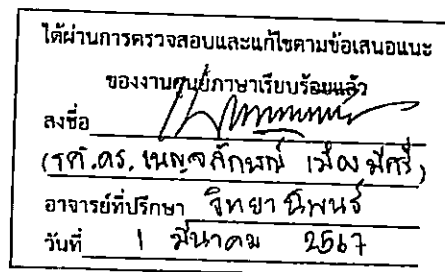 ได้ผ่านการตรวจสอบและแก้ไขตามข้อเสนอแนะ
ของงานศูนย์ภาษาเรียบร้อยแล้ว
ลงชื่อ
(รศ.ดร. เบญจลักษณ์ เมืองมีศรี)
อาจารย์ที่ปรึกษา วิทยานิพนธ์
วันที่ 1 มีนาคม 2567